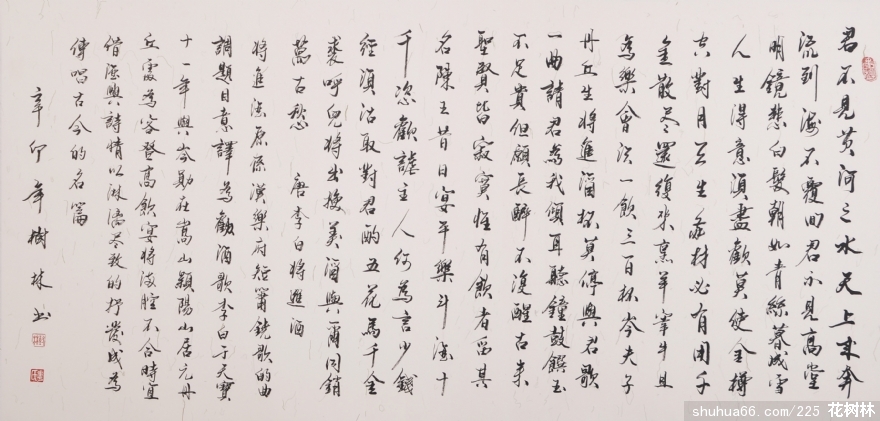 君不见黄河之水天上来奔
流到海不覆回君不见高堂
明镜悲白髮朝如青絲暮成雪
人生得意须盡歡莫使金樽
空對月天生吾材必有用千
金散盡還復来烹羊宰牛且
為樂會须一飲三百杯岑夫子
丹丘生将進酒杯莫停與君歌
一曲請君為我傾耳聽鐘鼓饌玉
不足貴但願長醉不復醒古来
聖賢皆寂寞惟有飲者留其
名陳王昔日宴平樂斗酒十
千恣歡謔主人何為言少錢
經须沽取對君酌五花馬千金
裘呼兒将出换美酒與爾同銷
萬古愁 唐李白将進酒
将進酒原係漢樂府短簫鐃歌的曲
調題目意譯為勸酒歌李白于天寶
十一年與岑勛在嵩山穎陽山居元丹
丘處為客登高飲宴将滿腔不合時宜
借酒興詩情以淋漓盡致的抒發成為
傳唱古今的名篇
辛卯年樹林书
shuhua66.com/225 花树林